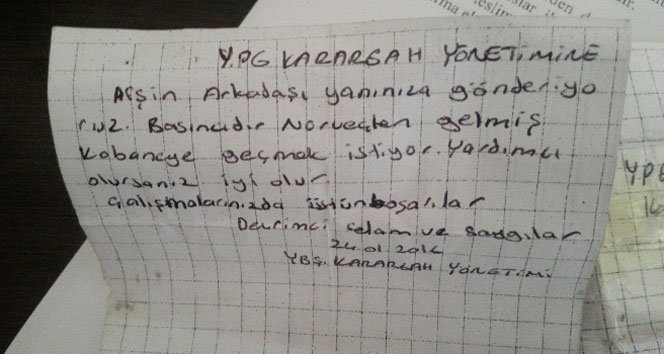 YPG KARARGAH YÖNETiMiNE
Afşin Arkadaşı yanınıza gönderiyo
ruz. Basıncıdır Norveçten gelmiş
Kobaneye geçmek istiyor. Yardımcı
olursanız iyi olur
Çalışmalarınızda üstün başarılar
Devrimci selam ve saygılar
24 01 2016
YBŞ. KARARGAH YÖNETİMİ
YPG